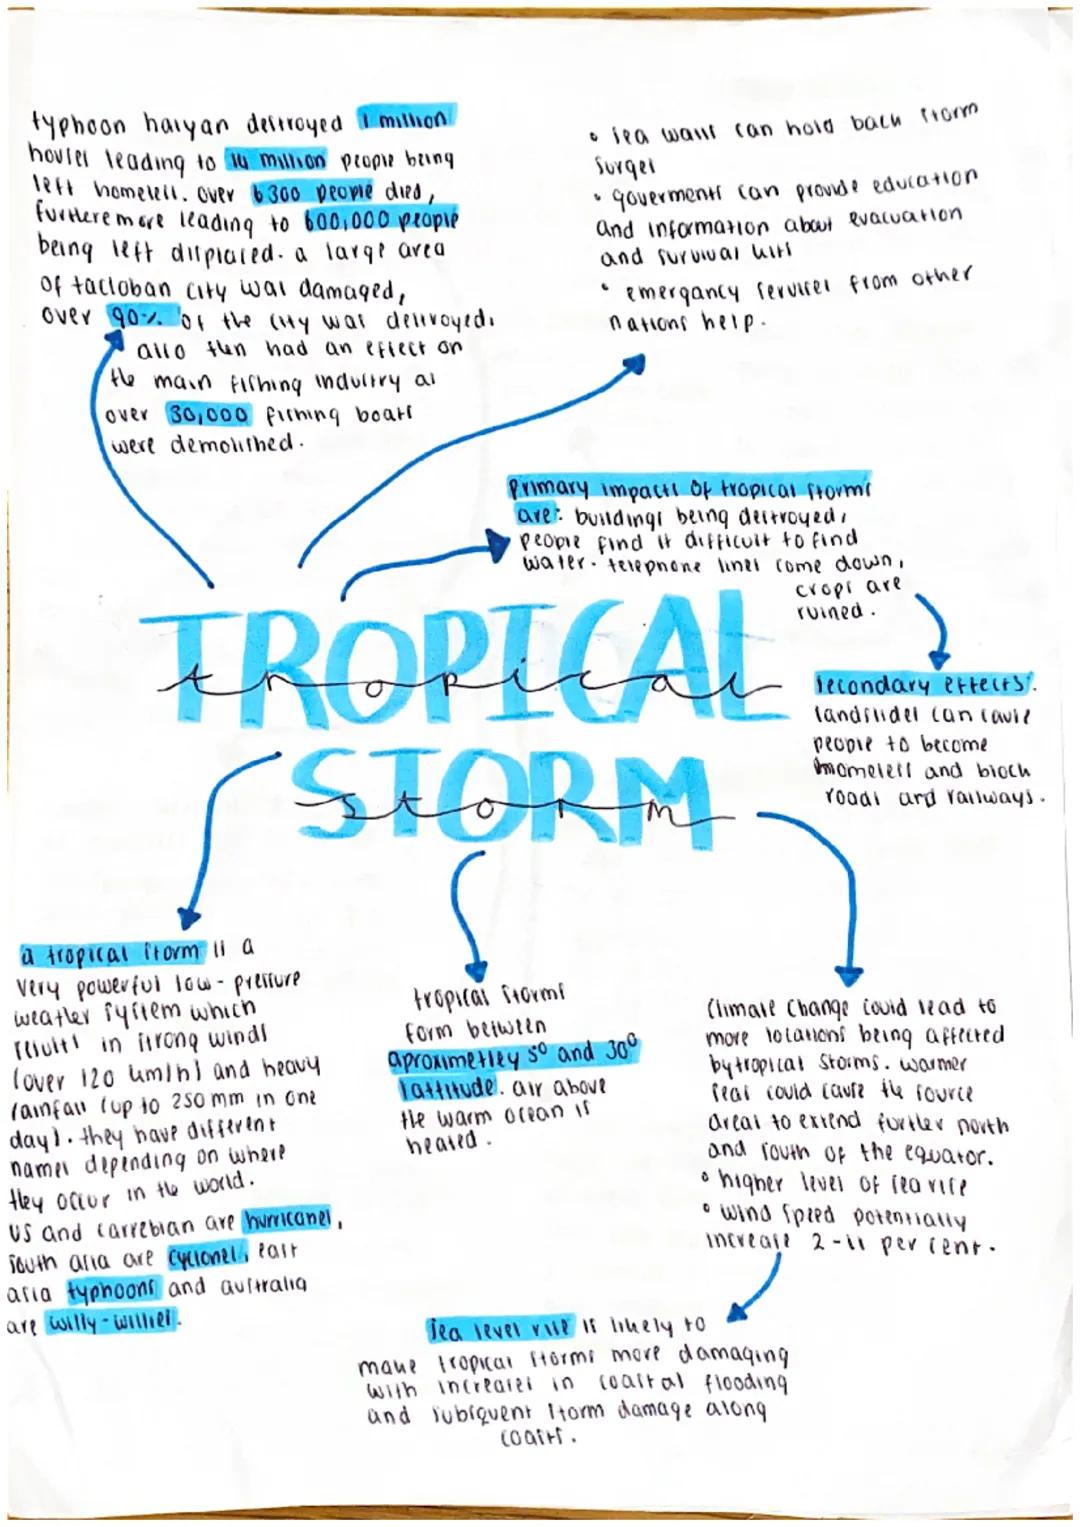 typhoon haiyan destroyed 1 million
houses leading to 14 million people being
left homeless. over 6300 people died,
furtheremore leading to 600,000 people
being left displaced. a large area
of tacloban city was damaged,
over 90% of the city was destroyed.
also then had an effect on
the main fishing industry as
over 30,000 fishing boats
were demolished.
• sea walls can hold back storm
surges
• goverments can provide education
and information about evacuation
and survival kits
• emergancy services from other
nations help.
primary impacts of tropical storms
are: buildings being destroyed,
people find it difficult to find
water. telephone lines come down,
crops are
ruined.
TROPICAL
tropical
STORM
storm
secondary effects:
landslides can cause
people to become
homeless and block
roads and railways.
a tropical storm is a
very powerful low-pressure
weather system which
results in strong winds
(over 120 km/h) and heavy
rainfall (up to 250mm in one
day). they have different
names depending on where
they occur in the world.
US and carrebian are hurricanes,
south asia are cyclones, east
asia typhoons and australia
are willy-willies.
tropical storms
form between
aproximetley 5° and 30°
lattitude. air above
the warm ocean is
heated.
climate change could lead to
more locations being affected
by tropical storms. warmer
seas could cause the source
areas to extend further north
and south of the equator.
• higher level of sea rise
• wind speed potentially
increase 2-11 per cent.
sea level rise is likely to
make tropical storms more damaging
with increases in coastal flooding
and subsquent storm damage along
coasts.